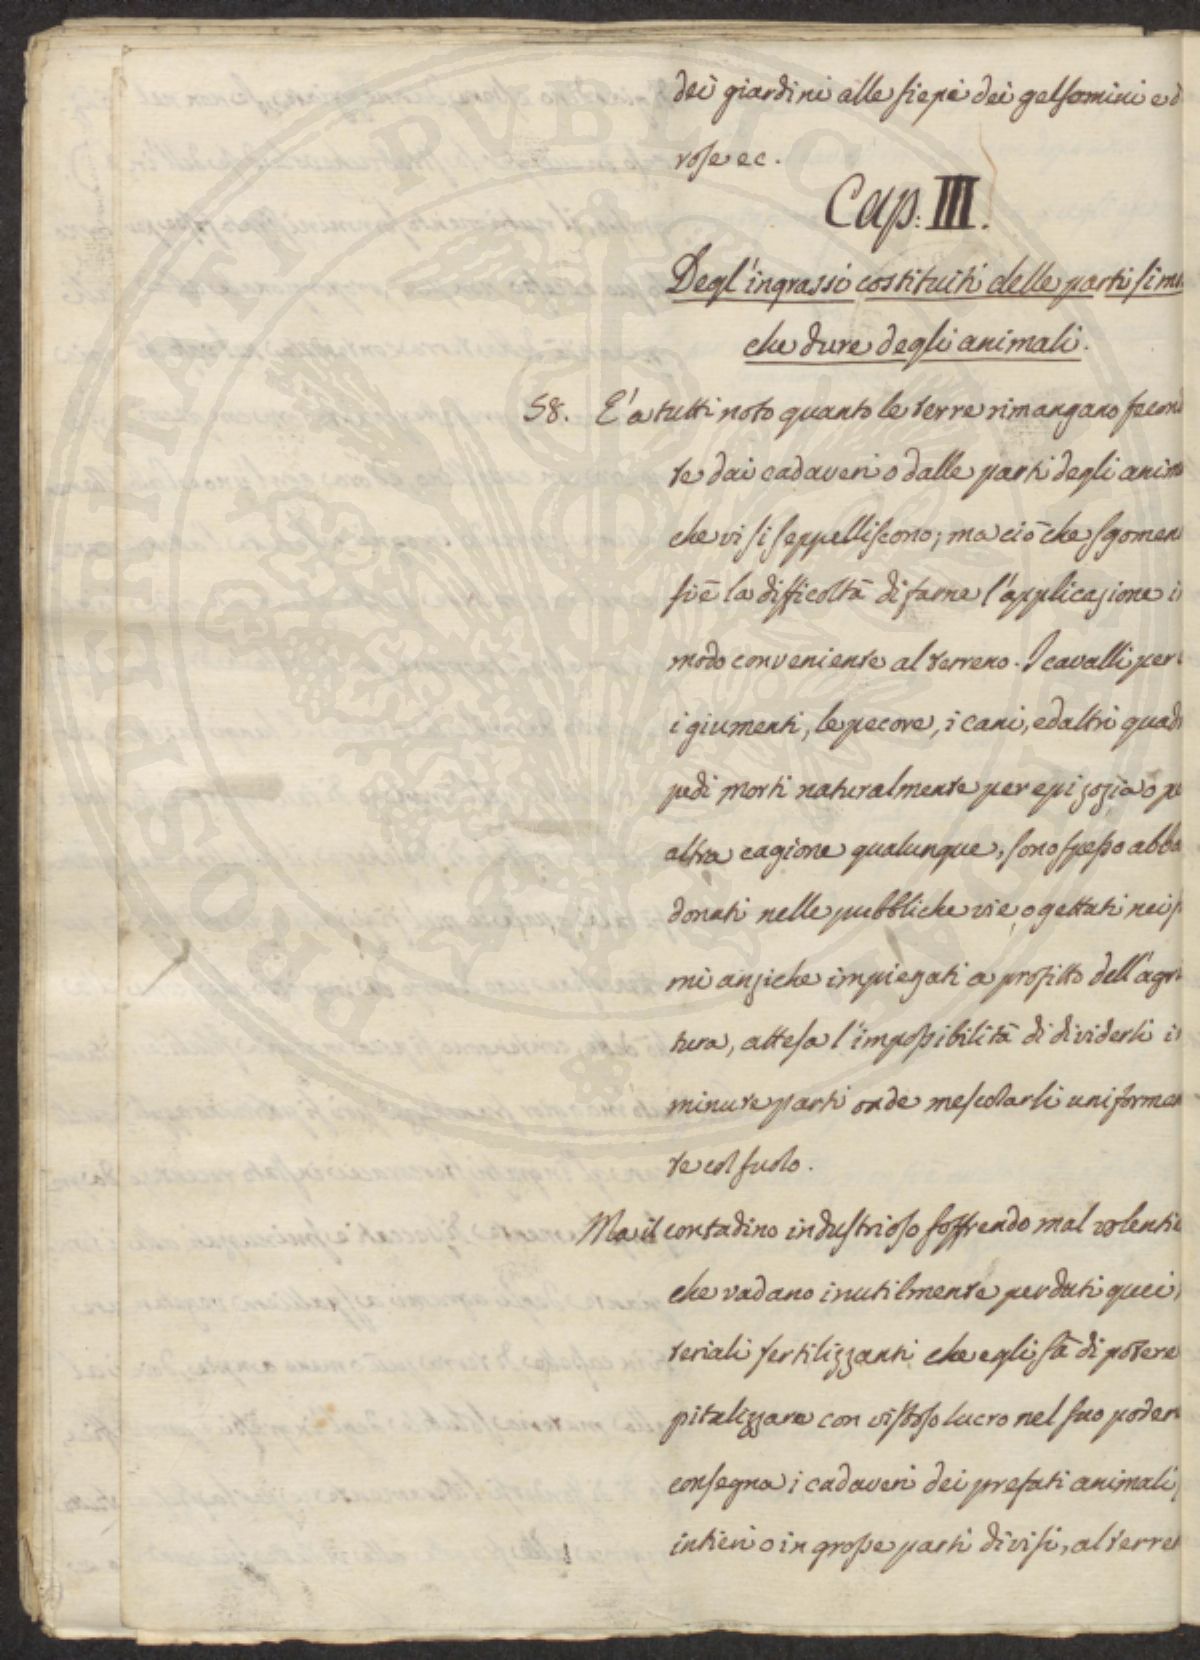 dei giardini alle siepi dei gelsomini e d
rose ec.
Cap: III.
Degl'ingrassi costituiti delle parti si mo
che dure degli animali.
58. E' a tutti noto quanto le terre rimangano fecon
te dai cadaveri o dalle parti degli anim
che vi si seppelliscono; ma ciò che sgomen
si è la difficoltà di farne l'applicazione i
modo conveniente al terreno. I cavalli per
i giumenti, le pecore, i cani, ed altri quadr
pedi morti naturalmente per epizozia o pe
altra cagione qualunque, sono spesso abba
donati nelle pubbliche vie, o gettati nei f
mi anziche impiegati a profitto dell'agri
tura, attesa l'impossibilità di dividerli i
minute parti onde mescolarli uniformem
te col suolo.
Ma il contadino industrioso soffrendo mal volentie
che vadano inutilmente perduti quei
teriali fertilizzanti che egli sà di potere
pitalizzare con vistoso lucro nel suo poder
consegna i cadaveri dei prefati animali,
intieri o in grosse parti divisi, al terre